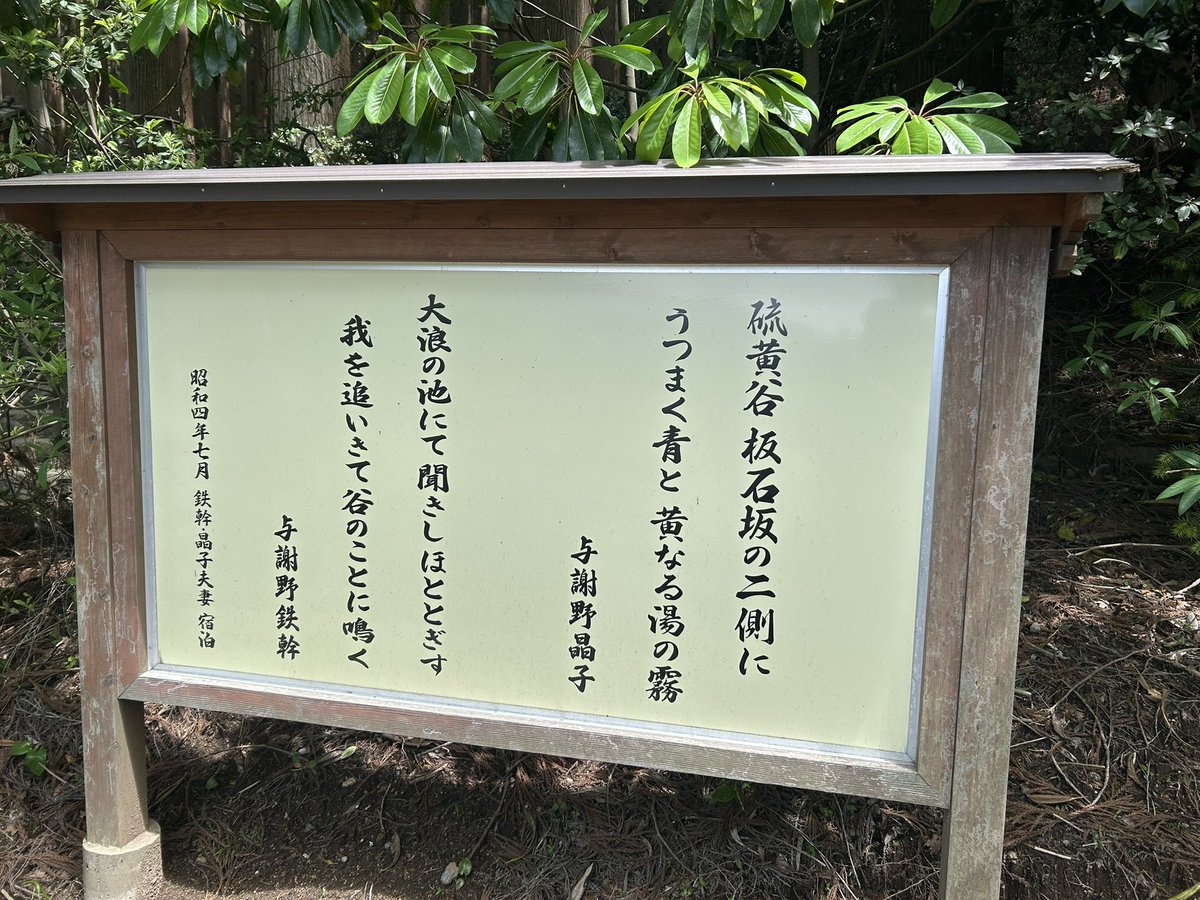 硫黄谷 板石坂の二側に
うつまく青と 黄なる湯の霧
与謝野晶子
大浪の池にて 聞きし ほととぎす
我を追いきて 谷のことに鳴く
与謝野鉄幹
昭和四年七月 鉄幹・晶子夫妻 宿泊